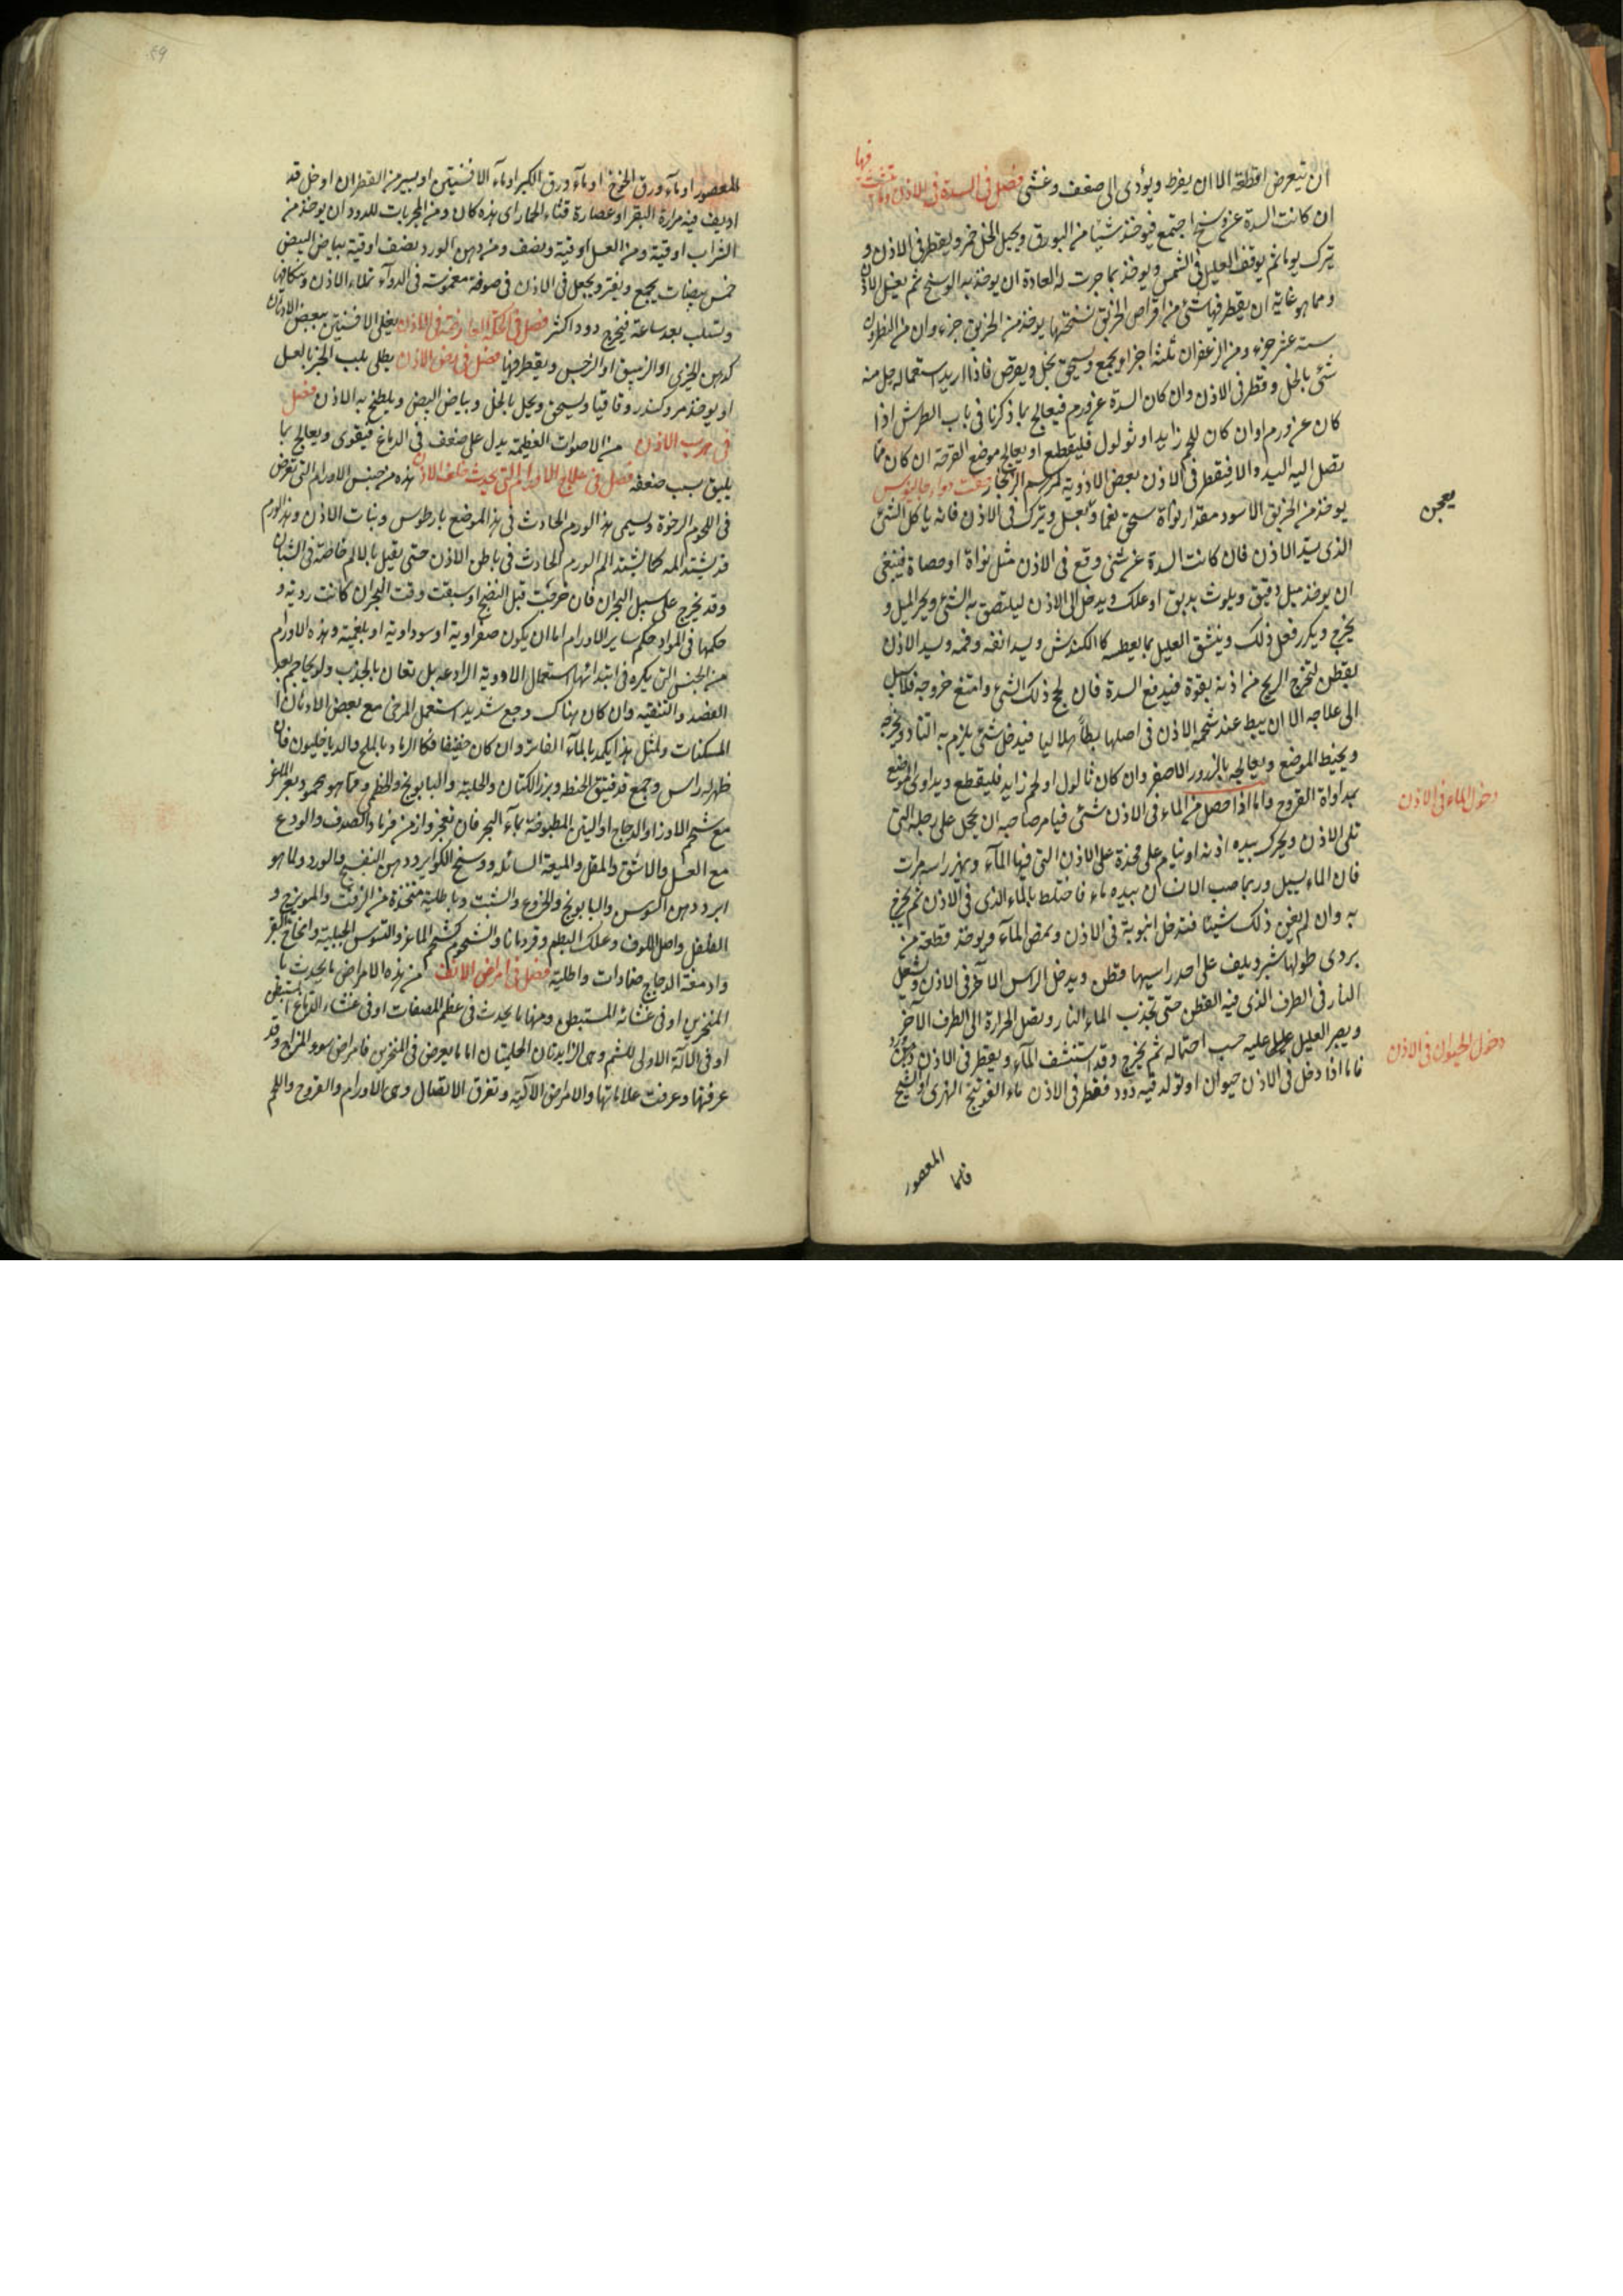 ان يتعرض لقطعه الا ان يفرط ويؤدى الى ضعف وغشى فصل فى السدة فى الاذن وما ينشب فيها
ان كانت السدة عن وسخ اجتمع فيوخذ شيئا من البورق ويحل بالخل خمر ويقطر فى الاذن و
يترك يوما ثم يوقف العليل فى الشمس ويوخذ بما جرت له العادة ان يوخذ به الوسخ ثم يغسل الاذن
ومما هو غاية ان يقطر فيها شئ من اقراص الخربق نسختها يوخذ من الخربق جزء وان من النطرون
ستة عشر جزء ومن الزعفران ثلثة اجزاء يجمع ويسحق بخل ويقرص فاذا اريد استعماله حل منه
شئ بالخل وقطر فى الاذن وان كان السدة عن ورم فيعالج بما ذكرنا فى باب الطرش اذا
كان عن ورم وان كان للحم زايد او ثولول فليقطع او يعالج موضع القرحة ان كان مما
تصل اليه اليد والا فيقطر فى الاذن بعض الادوية كمرهم الزنجار صفت دواء جالينوس
يوخذ من الخربق الاسود مقدار نواة يسحق نعما وبعسل ويترك فى الاذن فانه ياكل الشئ
يعجن
الذى يسد الاذن فان كانت السدة عن شئ وقع فى الاذن مثل نواة او حصاة فينبغى
ان يوخذ ميل دقيق ويلوث بدبق او علك ويدخل الى الاذن ليلتصق به الشئ ويجر الميل و
يخرج ويكرر فعل ذلك وينشق العليل بما يعطسه كالكندش ويسد انفه وفمه ويسد الاذن
بقطن لتخرج الريح من اذنه بقوة فيدفع السدة فان لحج ذلك الشئ وامتنع خروجه فلا سبيل
الى علاجه الا ان يبط عند شحمة الاذن فى اصلها بطا هلاليا فيدخل شئ يلزم به النا ويخرجه
ويخيط الموضع ويعالجه بالذرور الاصفر وان كان ثالول او لحم زايد فليقطع ويداوى الموضع
بمداواة القروح واما اذا حصل من الماء فى الاذن شئ فيامر صاحبه ان يحجل على رجله التى
دخول الماء فى الاذن
تلى الاذن ويحرك بيده اذنه او ينام على مخدة على الاذن التى فيها المآء ويهز راسه مرات
فان الماء يسيل وربما صب الانسان بيده ماء فاختلط بالماء الذى فى الاذن ثم يخرج
به وان لم يغن ذلك شيئا فتدخل انبوبة فى الاذن ويمص المآء ويوخذ قطعة من
بردى طولها شبر ويلف على احد راسيها قطن ويدخل الراس الآخر فى الاذن ويشعل
النار فى الطرف الذى فيه القطن حتى تجذب الماء النار وتصل الحرارة الى الطرف الآخر
ويصبر العليل عليه حسب احتماله ثم يخرج وقد استنشف المآء ويقطر فى الاذن دهن ورد
دخول الحيوان فى الاذن
فاما اذا دخل فى الاذن حيوان او تولد فيه دود فقطر فى الاذن ماء الفوتنج النهرى او الشيح
المعصور
فاما
المعصور او مآء ورق الخوخ او مآء ورق الكبر او ماء الافسنتين او يسير من القطران او خل قد
اديف فيه مرارة البقر او عصارة قثاء الحمار اى هذه كان ومن المجربات للدود ان يوخذ من
الشراب اوقية ومن العسل اوقية ونصف ومن دهن الورد نصف اوقية بياض البيض
خمس بيضات يجمع ويفتر ويجعل فى الاذن فى صوفة مغموسة فى الدواء تملاء الاذن وتتكا فيها
وتسلب بعد ساعة فيخرج دود اكثر فصل فى الحكة العارضة فى الاذن يغلى الافسنتين ببعض الادهان
كدهن الخيرى او الزنبق او النرجس ويقطر فيها فصل فى رض الاذن يطلى بلب الخبز بالعسل
او يوخذ مر وكندر وقاقيا ويسحق ويحل بالخل وبياض البيض ويلطخ به الاذن فصل
فى هرب الاذن من الاصوات العظيمة يدل على ضعف فى الدماغ فيقوى ويعالج بما
يليق بسبب ضعفه فصل فى علاج الاورام التى تحدث خلف الاذن هذه من جنس الاورام التى تعرض
فى اللحوم الرخوة ويسمى هذا الورم الحادث فى هذا الموضع بارطوس وبنات الاذن وهذا الورم
قد يشتد المه كما يشتد الم الورم الحادث فى باطن الاذن حتى يقتل بالالم خاصة فى الشبان
وقد يخرج على سبيل البحران فان خرجت قبل النضج او سبقت وقت البحران كانت ردية و
حكمها فى المواد حكم ساير الاورام اما ان يكون صفراوية او سوداوية او بلغمية وهذه الاورام
من الجنس الذى يكره فى ابتدائها استعمال الادوية الرادعة بل تعان بالجذب ولو بمحاجم بعد
الفصد والتنقيه وان كان هناك وجع شديد استعمل المرخى مع بعض الادهان
المسكنات ولمثل هذا يكمد بالمآء الفاتر وان كان خفيفا فكالرماد بالملح والدياخيلون فان
ظهر له راس وجمع قد فيتق الحنطة وبزر الكتان والحلبة والبابونج والخطمى ومما هو محمود بعر الماعز
مع شحم الاوز او الدجاج او التين المطبوخة بمآء البحر فان تحجر وازمن فرماد الصدف والودع
مع العسل والاشق والمقل والميعة السائلة ووسخ الكواير ودهن البنفسج والورد ولما هو
ابرد دهن السوسن والبابونج والخروع والشبت وباطلية متخذة من الزفت والمويزج و
الفلفل واصل اللوف وعلك البطم وقردمانا والشحوم كشحم الماعز والتيوس الجبلية وامخاخ البقر
وادمغة الدجاج ضمادات واطلية فصل فى امراض الانف من هذه الامراض ما يحدث با
المنخرين او فى غشائه المستبطن ومنها ما يحدث فى عظم المصفات او فى غشاء الدماغ المستبطن
او فى الالآلة الاولى للشم وهى الزايدتان الحلميتان اما ما يعرض فى المنخرين فامراض سوء المزاج وقد
عرفتها وعرفت علاماتها والامراض الآلية وتفرق الاتصال وهى الاورام والقروح واللحم